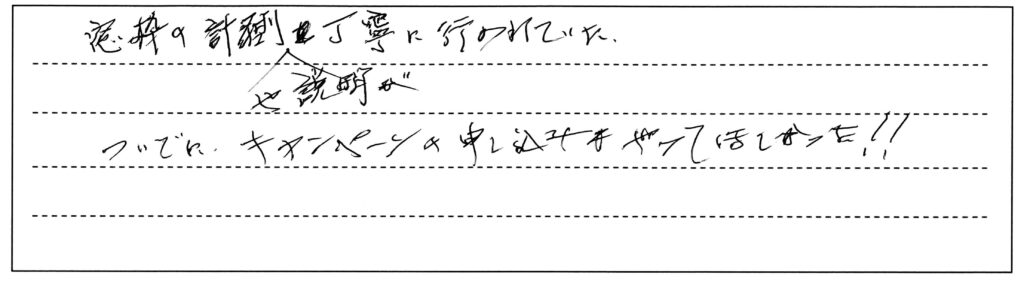 窓枠の計測や説明が丁寧に行われていた.
ついでに、キャンペーンの申し込みもやってほしかった!!